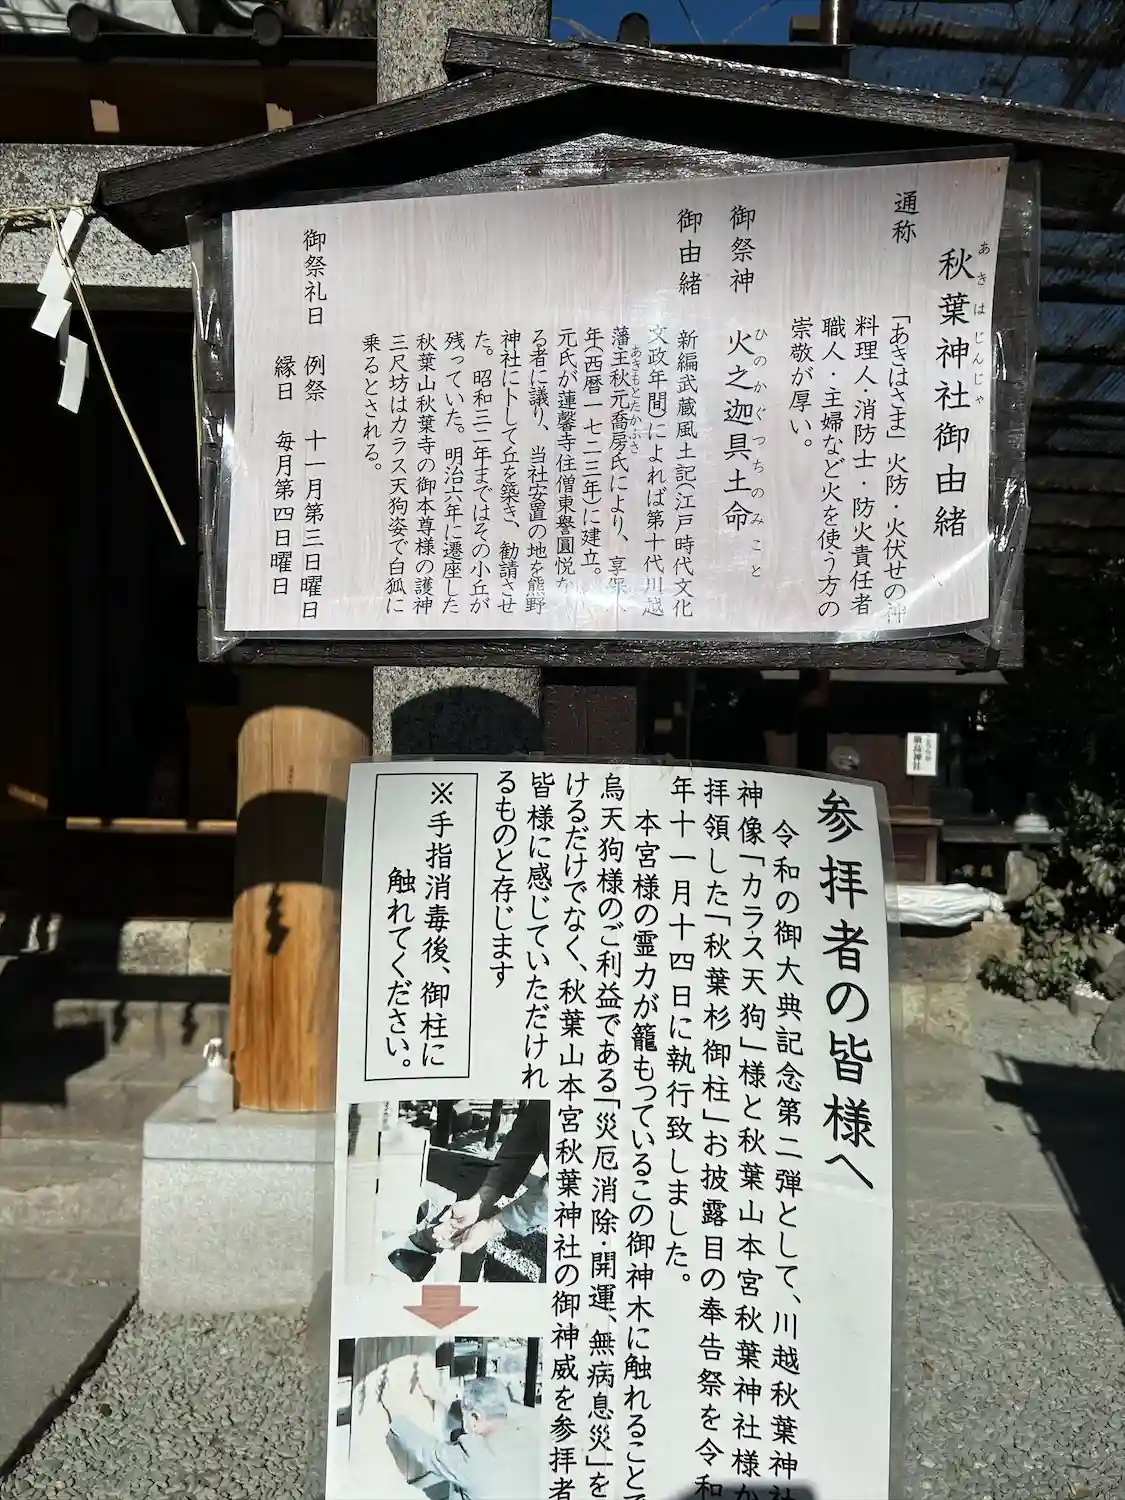 秋葉神社御由緒
あきはじんじゃ
通称
「あきはさま」火防・火伏せの神
料理人・消防士・防火責任者
職人・主婦など火を使う方の
崇敬が厚い。
御祭神
火之迦具土命
ひのかぐつちのみこと
御由緒
新編武蔵風土記(江戸時代文化
文政年間)によれば第十代川越
藩主秋元喬房氏により、享保
あきもとたかふさ
年(西暦一七二三年)に建立。
元氏が蓮馨寺住僧東誉圓悦な
る者に議り、当社安置の地を熊野
神社に卜して丘を築き、勧請させ
た。昭和三二年まではその小丘が
残っていた。明治六年に遷座した
秋葉山秋葉寺の御本尊様の護神
三尺坊はカラス天狗姿で白狐に
乗るとされる。
御祭礼日
例祭 十一月第三日曜日
縁日 毎月第四日曜日
参拝者の皆様へ
令和の御大典記念第二弾として、川越秋葉神社
神像「カラス天狗」様と秋葉山本宮秋葉神社様か
拝領した「秋葉杉御柱」お披露目の奉告祭を令和
年十一月十四日に執行致しました。
本宮様の霊力が籠もっているこの御神木に触れることで
烏天狗様のご利益である「災厄消除・開運、無病息災」を
けるだけでなく、秋葉山本宮秋葉神社の御神威を参拝者
皆様に感じていただけれ
るものと存じます
※手指消毒後、御柱に
触れてください。